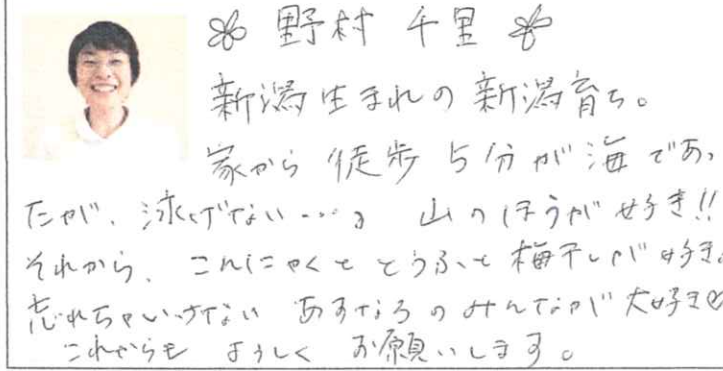 野村 千里
新潟生まれの新潟育ち。
家から 徒歩 5分が海であっ
たが、泳げない…。 山のほうが好き!!
それから、こんにゃくと とうふと 梅干しが 好き。
忘れちゃいけない あすなろの みんなが 大好き♡
これからも よろしく お願いします。